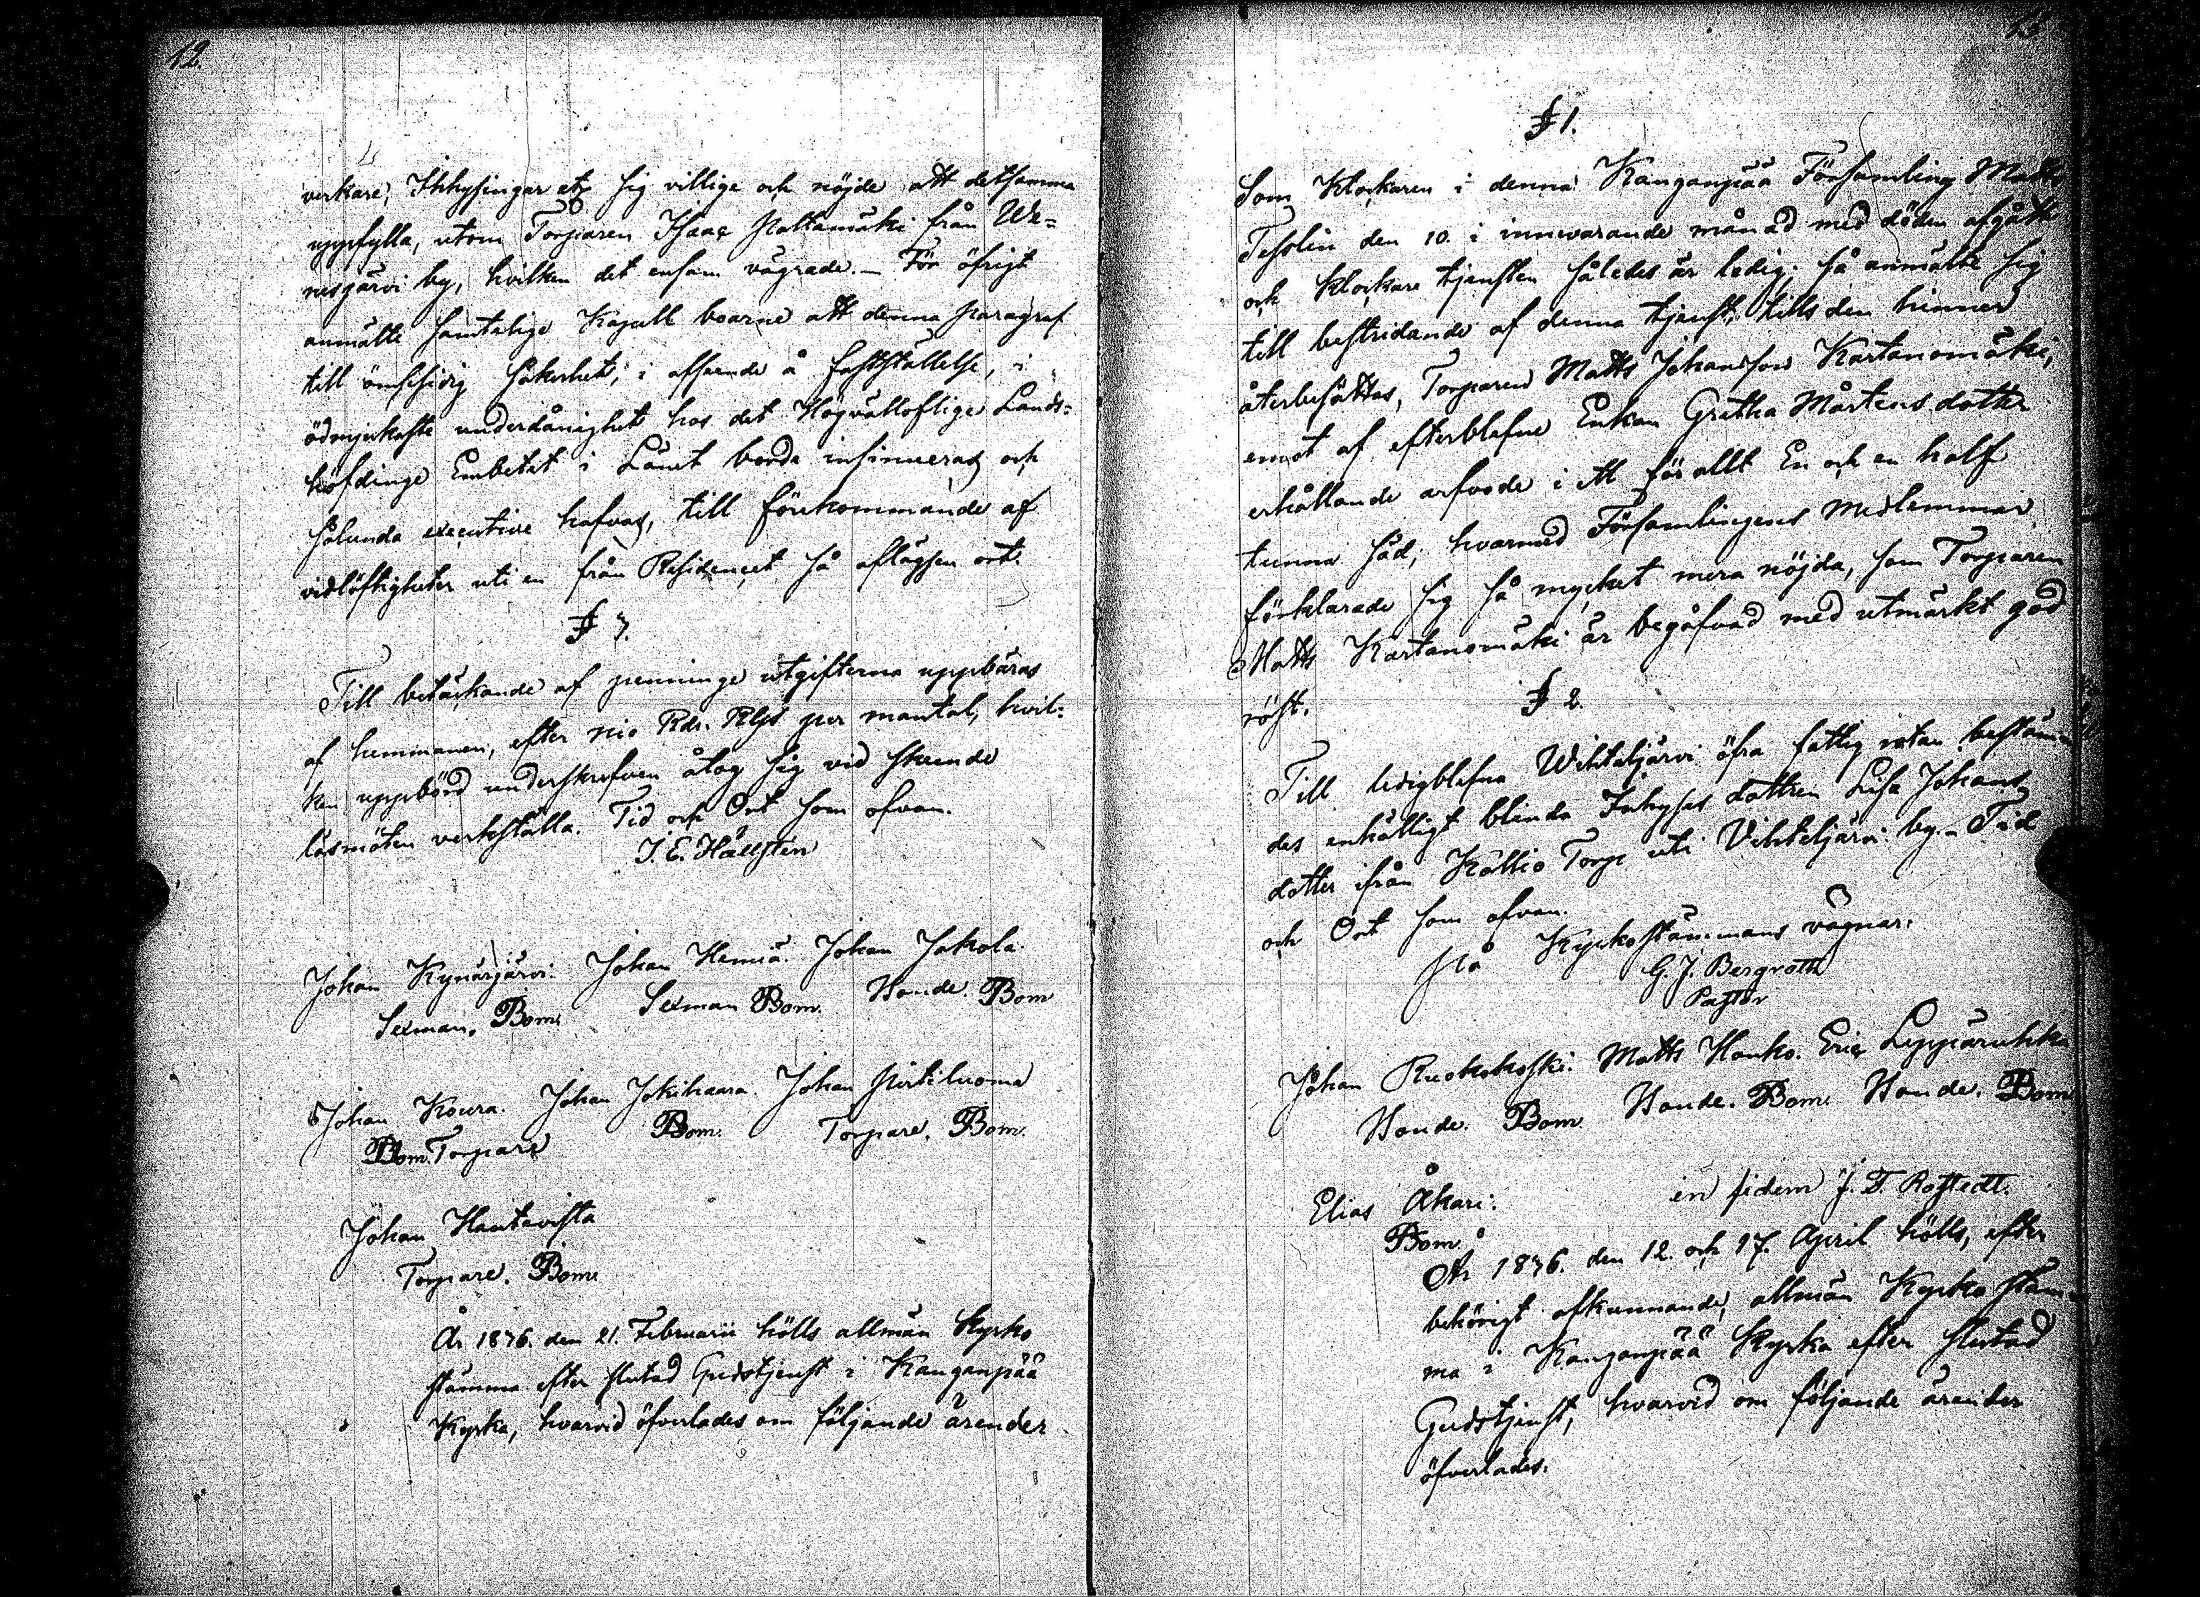 12.
verkare, Inhysingar etc sig villige och nöjde att detsamma
uppfylla, utom Torparen Isaac Paltamäki från We-
nesjärvi by, hvilken det ensam vägrade. – För öfrigt
anmälte samtelige Kapell boarne att denna paragraf
till ömsesidig säkerhet, i afseende å fastställelse, i
ödmjukaste underdånighet hos det Högvälloflige Lands-
höfdinge Embetet i Länet borde insinueras och
sålunda executive hafvas, till förekommande af
vidlöftigheter uti en från Residencet så aflägsen ort.
§ 7.
Till betäckande af penninge utgifterna uppbäras
af hemmanen, efter nio Rdr. Rgs per mantal, hvil-
ken uppbörd underskrefven åtog sig vid skeende
läsmöten verkställa. Tid och Ort som ofvan.
I. E. Hällsten
Johan Kynäsjärvi. Johan Hemiä. Johan Jakola
Sexman. Bom. Sexman Bom. Bonde. Bom
Johan Koura. Johan Jokihaara. Johan Pirtiluoma
Bom. Torpare Bom. Torpare. Bom.
Johan Hautavista
Torpare. Bom.
År 1836. den 21. Februarii hölls allmän Kyrko
stämma efter slutad Gudstjenst i Kanganpää
Kyrka, hvarvid öfverlades om följande ärender
13
§ 1.
Som Klockaren i denna Kanganpää Församling Matts
Tesslin den 10. i innevarande månad med döden afgått
och Klockare tjensten således är ledig; så anmälte sig
till bestridande af denna tjenst, tills den hinner
återbesättas, Torparen Matts Johansson Kartanomäki,
emot af efterblefne Enkan Gretha Mårtens dotter
erhållande arfvode i ett för allt En och en half
tunna säd; hvarmed Församlingens Medlemmar
förklarade sig så mycket mera nöjda, som Torparen
Matts Kartanomäki är begåfvad med utmärkt god
röst.
§ 2.
Till ledigblefna Wihteljärvi öfra fattig rotan bestäm-
des enhälligt blinda Inhyses dottren Lisa Johans
dotter ifrån Kallio Torp uti Vihteljärvi by. – Tid
och Ort som ofvan.
På Kyrkostämmans vägnar:
G. J. Bergroth
Pastor
Johan Ruokokoski. Matts Honko. Eric Leppäruhka
Bonde. Bom Bonde. Bom. Bonde. Bom
Elias Åkari. in fidem J. F. Rostedt.
Bom
År 1836. den 12. och 17. April hölls, efter
behörigt afkunnande, allmän Kyrko stäm-
ma i Kanganpää Kyrka efter slutad
Gudstjenst, hvarvid om följande ärender
öfverlades.